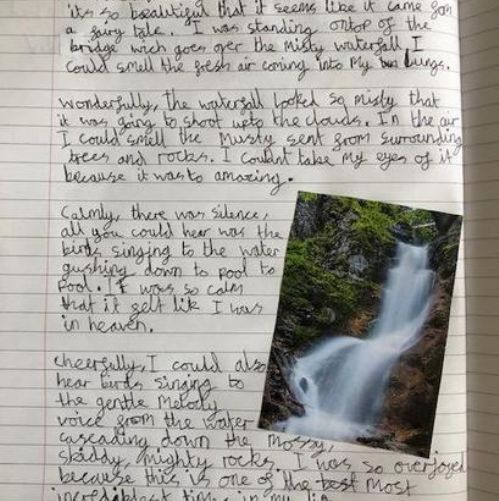 it's so beautiful that it seems like it came from
a fairy tale. I was standing ontop of the
bridge wich goes over the misty waterfall, I
could smell the fresh air coming into my lungs.
Wonderfully, the waterfall looked so misty that
it was going to shoot upto the clouds. In the air
I could smell the Musty sent from surrounding
trees and rocks. I couldnt take my eyes of it
because it was to amazing.
Calmly, there was silence,
all you could hear was the
birds singing to the water
gushing down to pool to
pool. It was so calm
that it felt lik I was
in heaven.
cheerfully, I could also
hear birds singing to
the gentle Melody
voice from the water
cascading down the mossy,
skiddy, mighty rocks. I was so overjoyed
because this is one of the best most
time in my